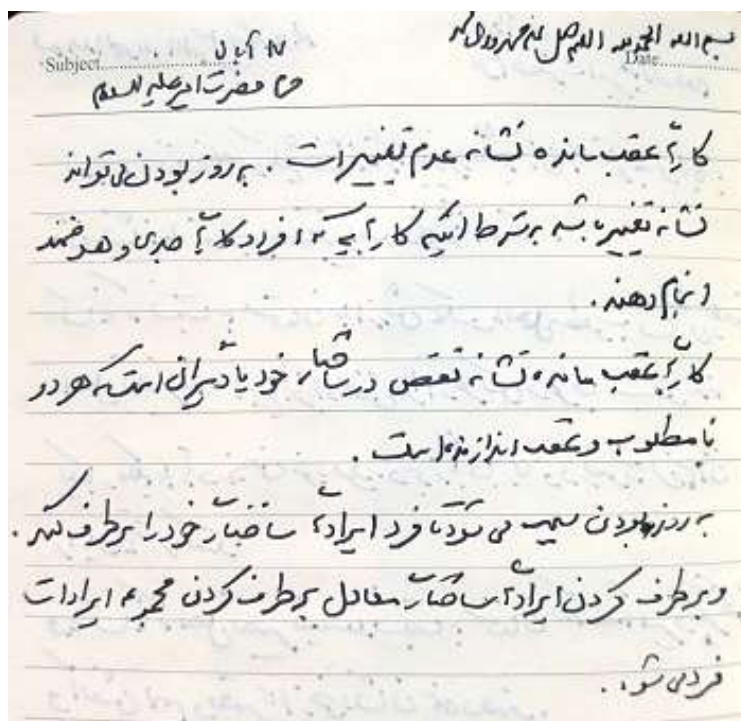 بسم الله الحمدلله اللهم صل علی محمد و آل محمد
Date
Subject
۱۷ آبان
حضرت امیر علیه السلام
کارهای عقب مانده نشانه عدم تغییر است. به روز بودن می تواند
نشانه تغییر باشد به شرط اینکه کارهایی که افراد کارهای جدی و هدفمند
انجام دهند.
کارهای عقب مانده نشانه نقص در ساختار خود یا دیگران است که هر دو
نامطلوب و عقب اندازنده است.
به روز بودن سبب می شود تا فرد ایرادهای ساختار خود را برطرف کند.
و برطرف کردن ایرادهای ساختار معادل برطرف کردن مجموعه ایرادات
فرد می شود.